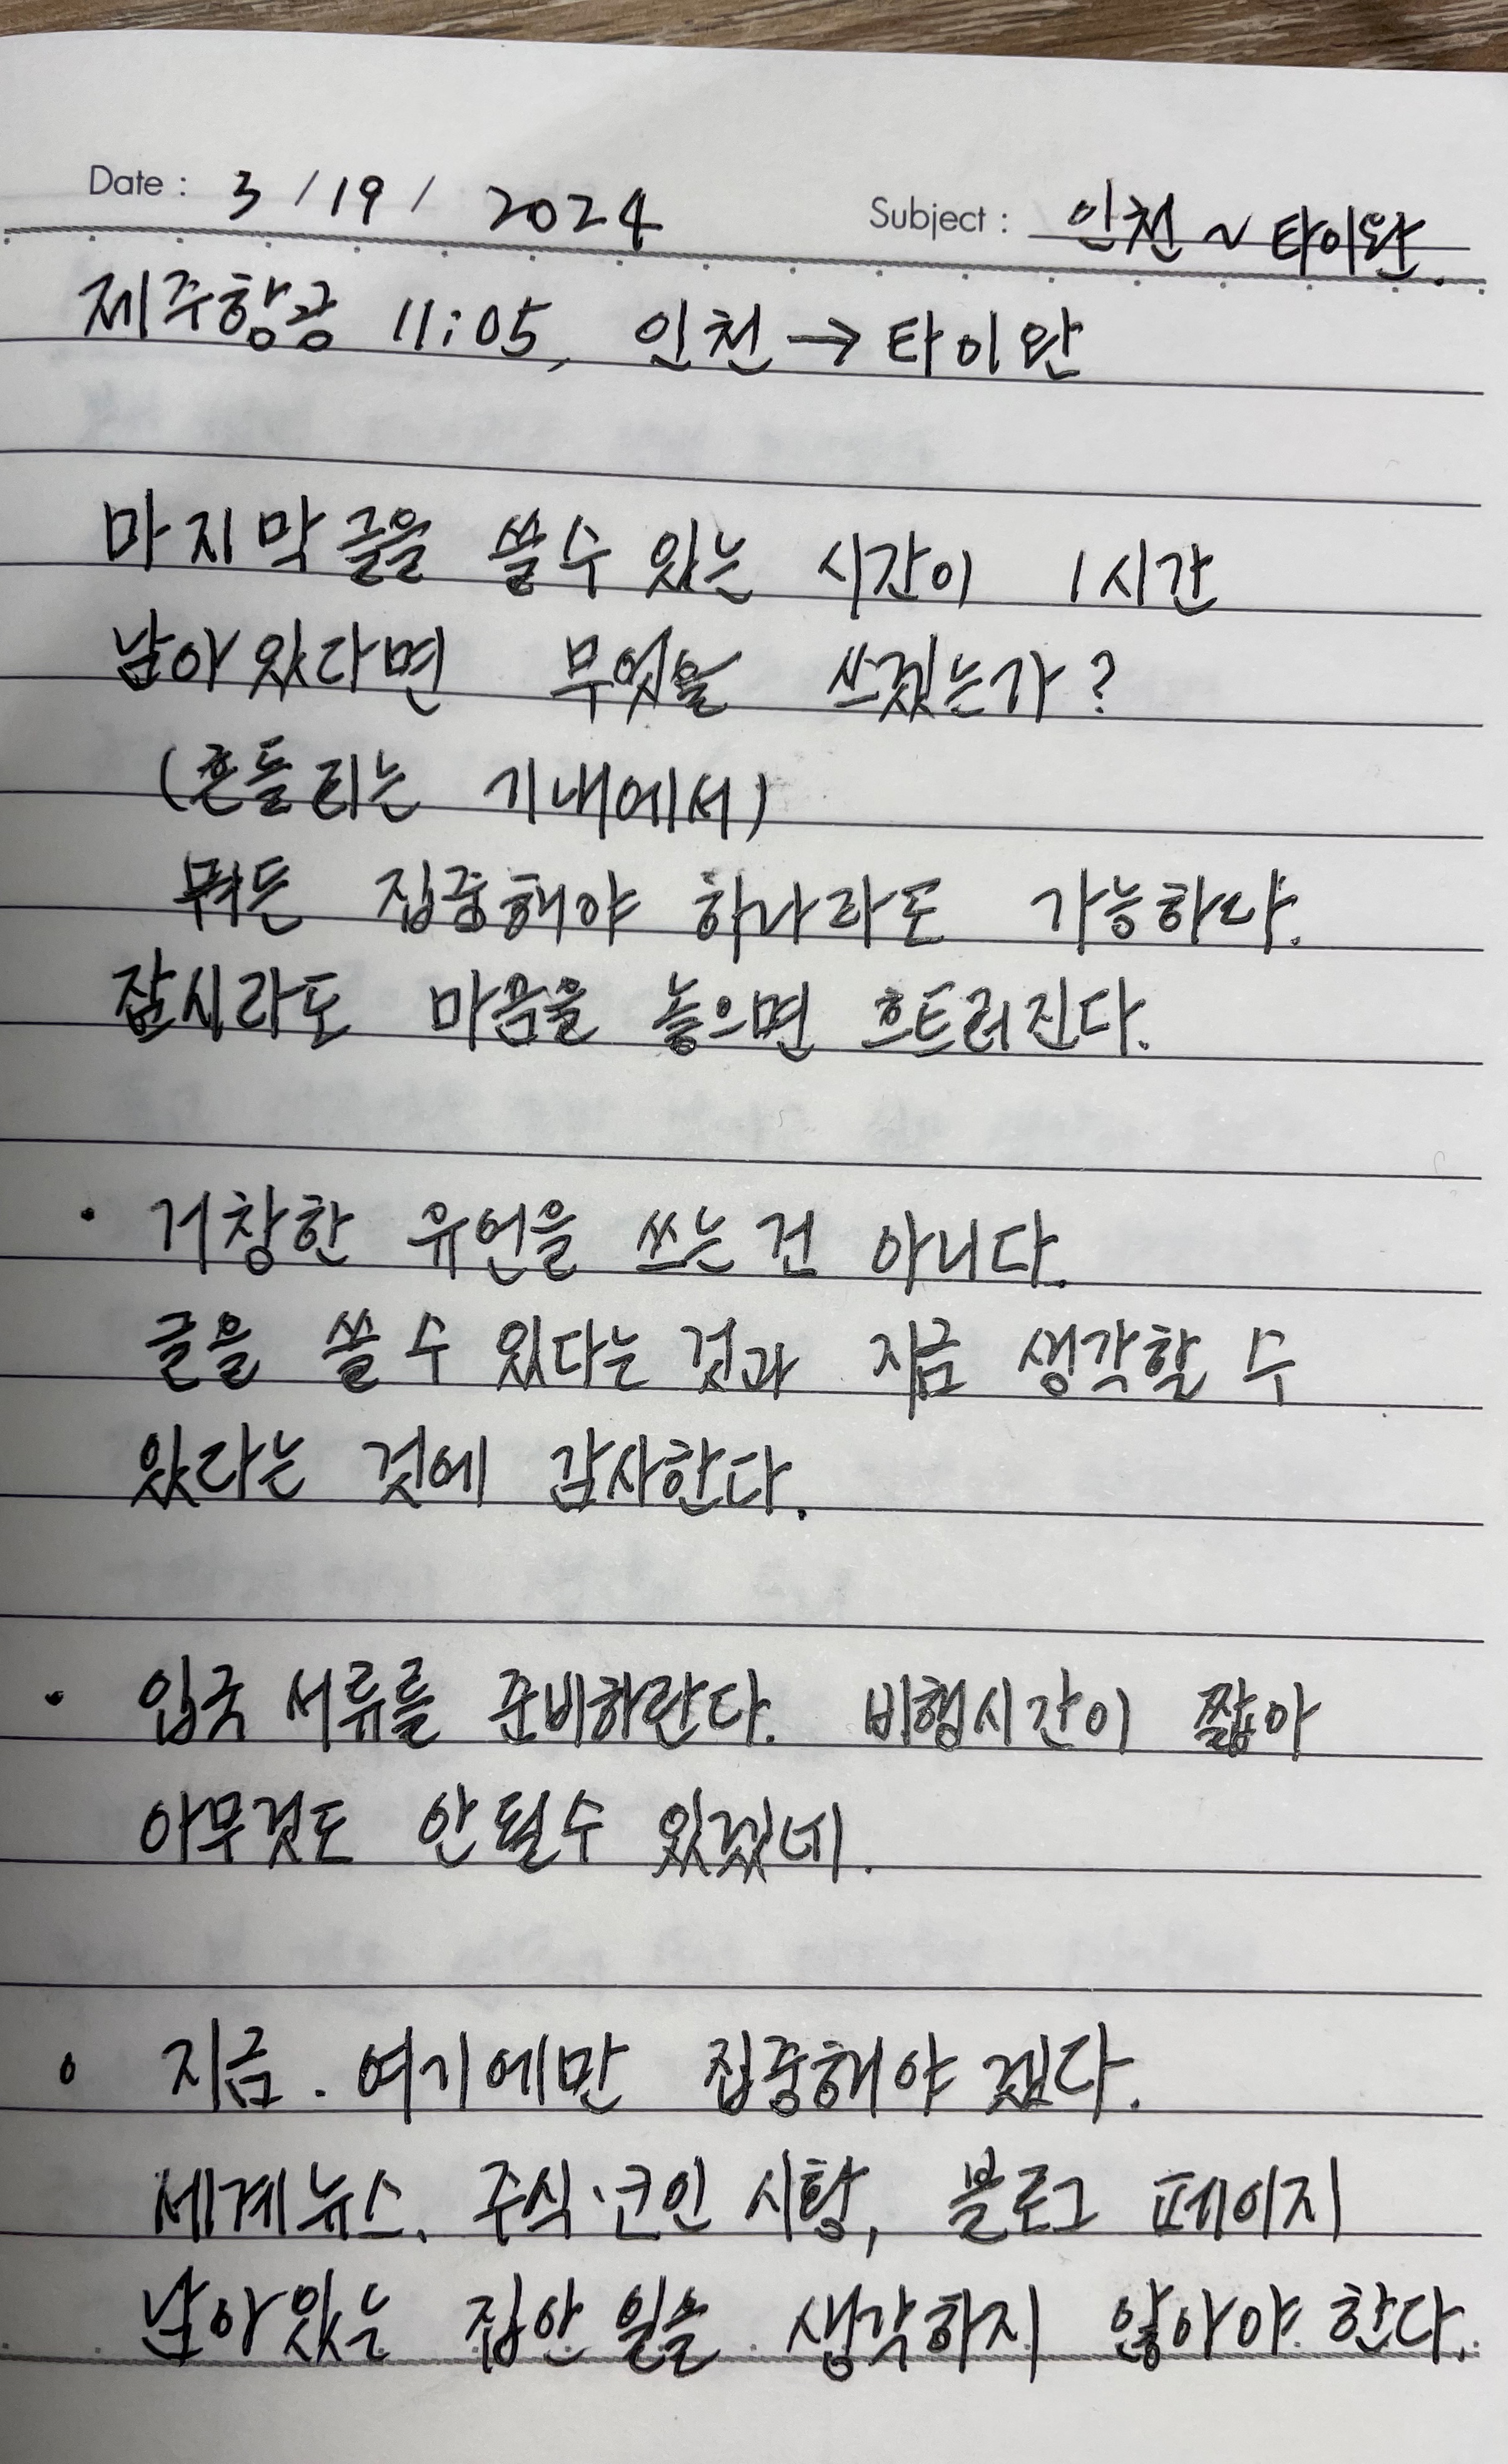 Date : 3 / 19 / 2024 Subject : 인천 ~ 타이완.
제주항공 11:05, 인천 → 타이완
마지막 글을 쓸 수 있는 시간이 1시간
남아 있다면 무엇을 쓰겠는가?
(흔들리는 기내에서)
뭐든 집중해야 하나라도 가능하다.
잠시라도 마음을 놓으면 흐트러진다.
· 거창한 유언을 쓰는 건 아니다.
글을 쓸 수 있다는 것과 지금 생각할 수
있다는 것에 감사한다.
· 입국 서류를 준비하란다. 비행시간이 짧아
아무것도 안 될 수 있겠네.
· 지금. 여기에만 집중해야겠다.
세계뉴스, 주식·코인 시황, 블로그 페이지
남아있는 집안 일을 생각하지 않아야 한다.